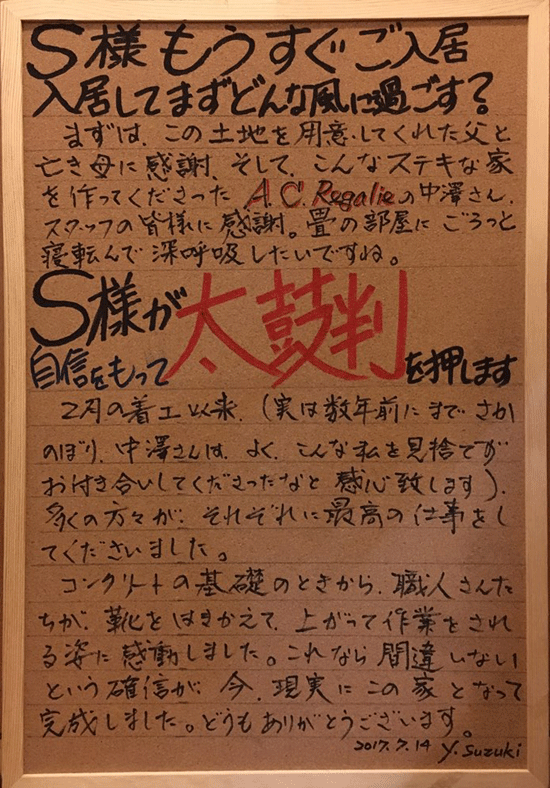 S様もうすぐご入居
入居してまずどんな風に過ごす?
まずは、この土地を用意してくれた父と
亡き母に感謝、そして、こんなステキな家
を作ってくださった A.C.Regalieの中澤さん、
スタッフの皆様に感謝。畳の部屋にごろっと
寝転んで深呼吸したいですね。
S様が太鼓判
自信をもって を押します
2月の着工以来、(実は数年前にまでさか
のぼり、中澤さんは、よく、こんな私を見捨てず
お付き合いしてくださったなと感心致します)、
多くの方々が、それぞれに最高の仕事をし
てくださいました。
コンクリートの基礎のときから、職人さんた
ちが、靴をはきかえて、上がって作業をされ
る姿に感動しました。これなら間違いない
という確信が、今、現実にこの家となって
完成しました。どうもありがとうございます。
2017.7.14 Y.Suzuki